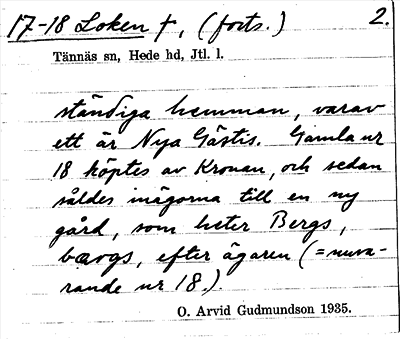 17-18 Loken †, (forts.) 2.
Tännäs sn, Hede hd, Jtl. l.
ständiga hemman, varav
ett är Nya Gästis. Gamla nr
18 köptes av Kronan, och sedan
såldes inägorna till en ny
gård, som heter Bergs,
bærgs, efter ägaren (= nuva-
rande nr 18.)
O. Arvid Gudmundson 1935.